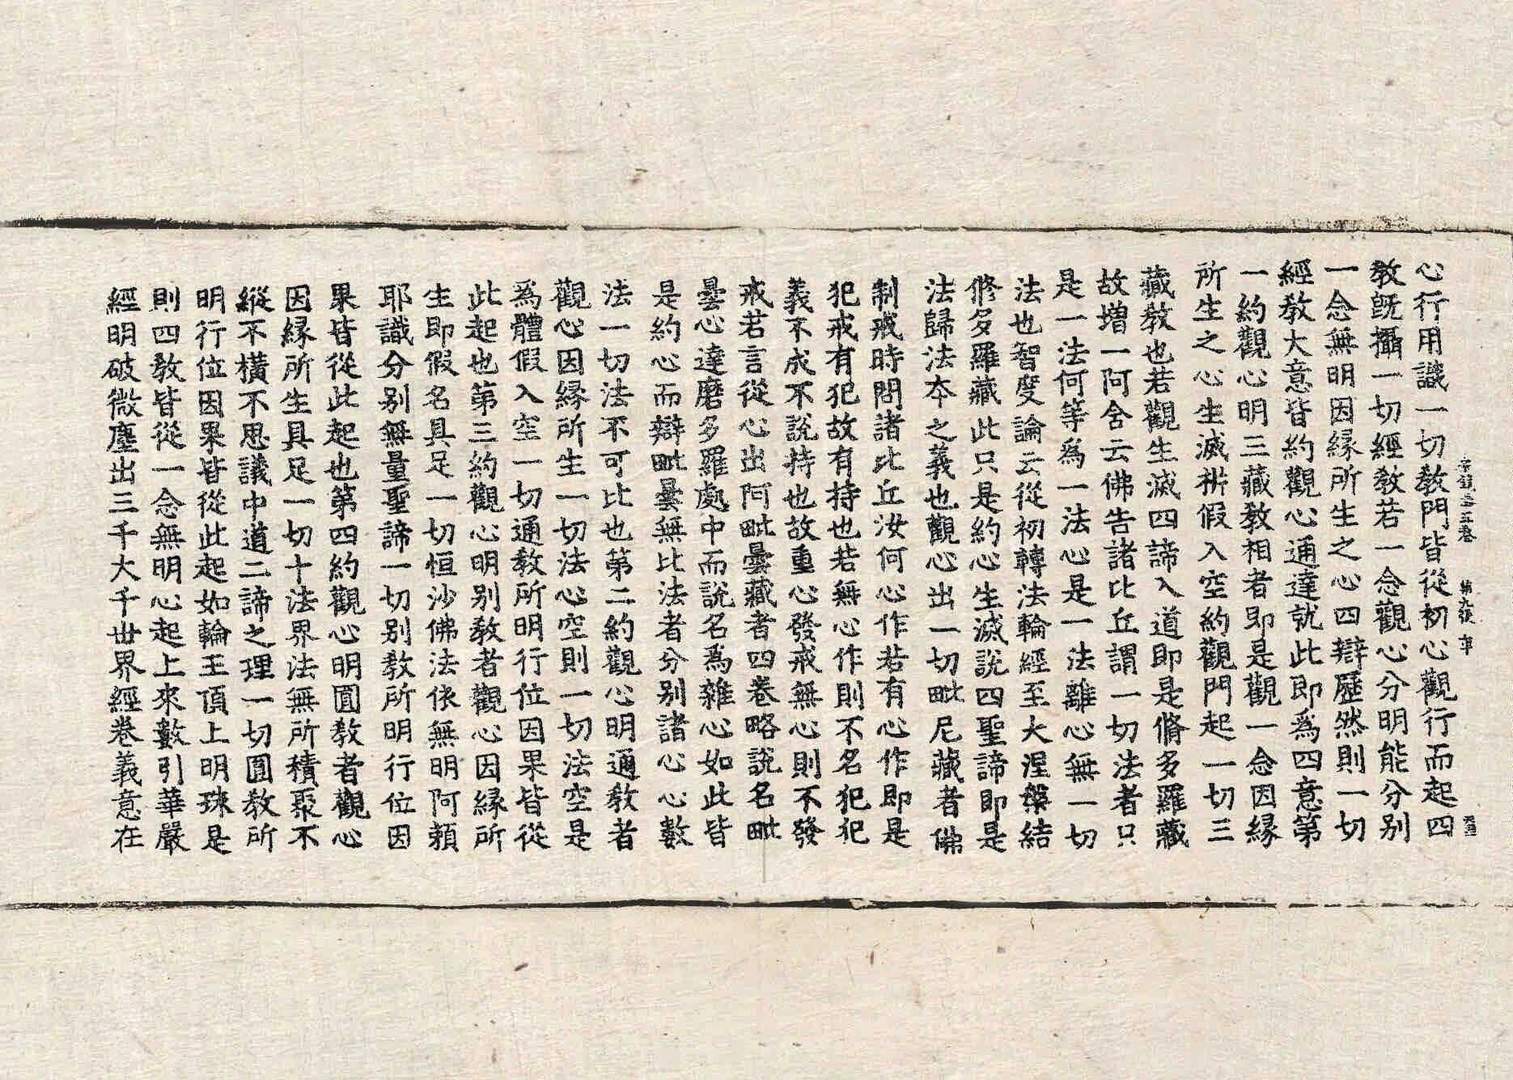 心行用識一切教門皆從初心觀行而起四
教旣攝一切經教若一念觀心分明能分別
一念無明因緣所生之心四辯歷然則一切
經教大意皆約觀心通達就此即爲四意第
一約觀心明三藏教相者即是觀一念因緣
所生之心生滅㭊假入空約觀門起一切三
藏教也若觀生滅四諦入道即是脩多羅藏
故增一阿含云佛告諸比丘謂一切法者只
是一法何等爲一法心是一法離心無一切
法也智度論云從初轉法輪經至大涅槃結
修多羅藏此只是約心生滅說四聖諦即是
法歸法本之義也觀心出一切毗尼藏者佛
制戒時問諸比丘汝何心作若有心作即是
犯戒有犯故有持也若無心作則不名犯犯
義不成不說持也故重心發戒無心則不發
戒若言從心出阿毗曇藏者四卷略說名毗
曇心達磨多羅處中而說名爲雜心如此皆
是約心而辯毗曇無比法者分別諸心心數
法一切法不可比也第二約觀心明通教者
觀心因緣所生一切法心空則一切法空是
爲體假入空一切通教所明行位因果皆從
此起也第三約觀心明別教者觀心因緣所
生即假名具足一切恒沙佛法依無明阿賴
耶識分別無量聖諦一切別教所明行位因
果皆從此起也第四約觀心明圓教者觀心
因緣所生具足一切十法界法無所積聚不
縱不橫不思議中道二諦之理一切圓教所
明行位因果皆從此起如輪王頂上明珠是
則四教皆從一念無明心起上來數引華嚴
經明破微塵出三千大千世界經卷義意在